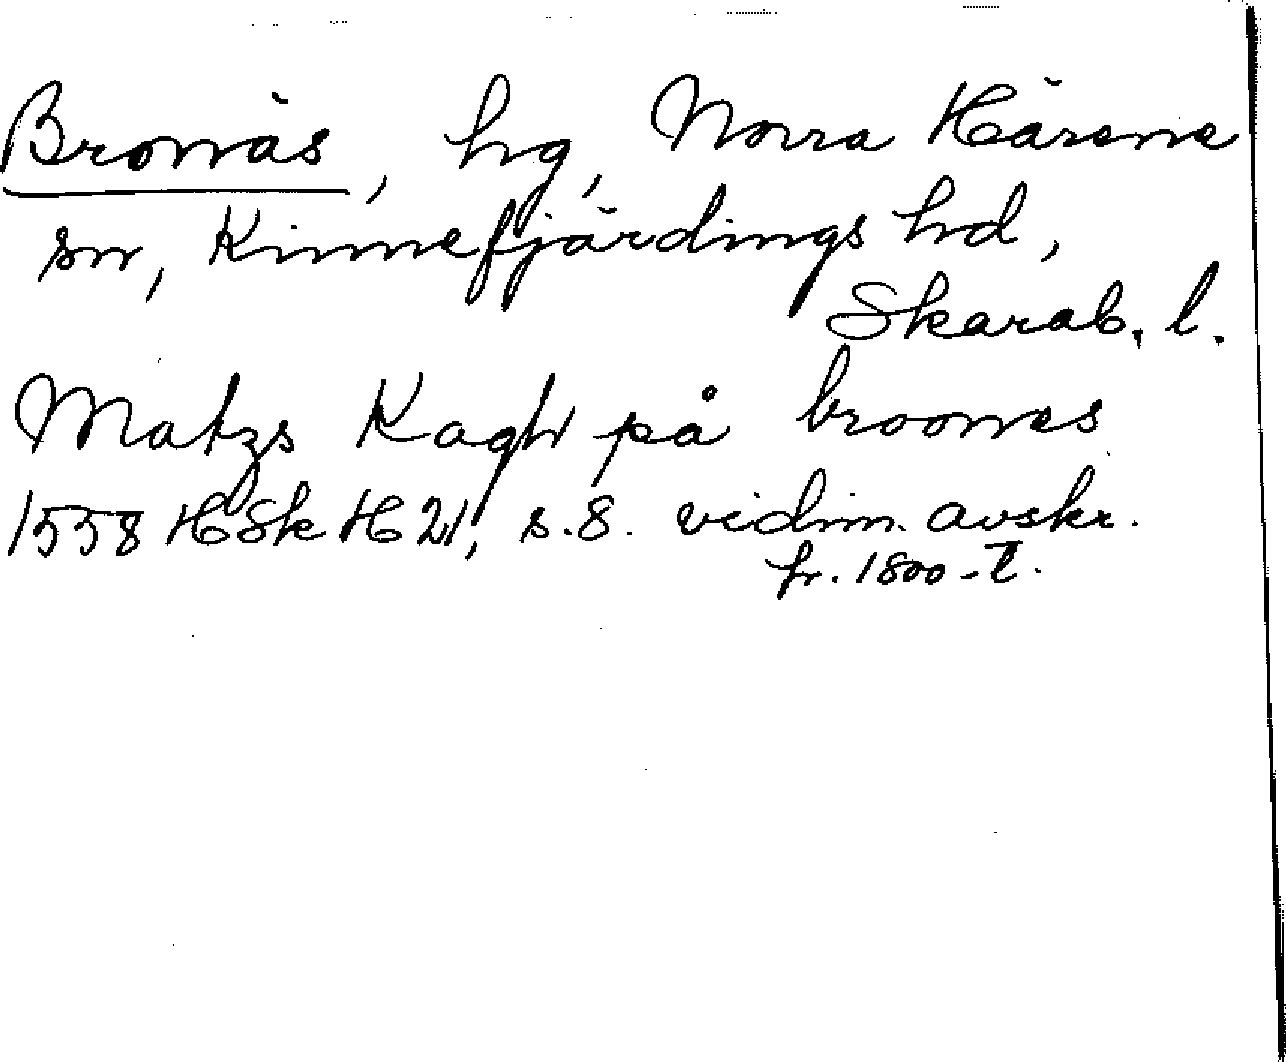 Bronäs, hg, Norra Härene
sn, Kinnefjärdings hd,
Skarab. l.
Matzs Kagh på broones
1558 HSk H 21, s. 8. vidim. avskr.
fr. 1800-t.